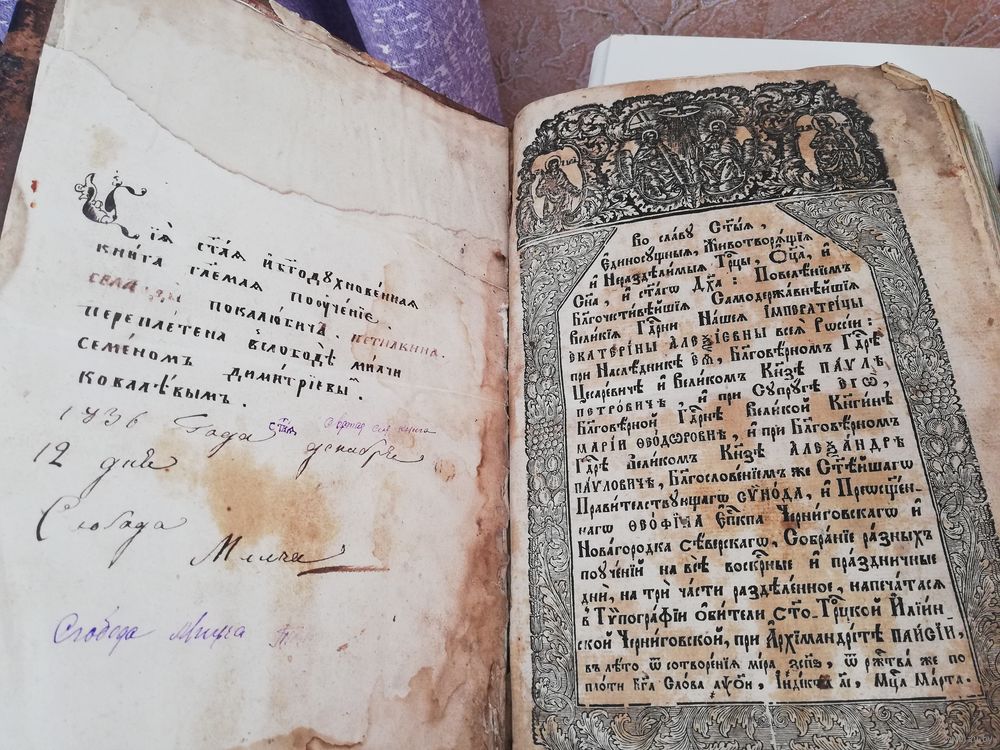 Сїѧ ст҃аѧ и бг҃одꙋхнове́ннаѧ
книга гл҃емаѧ поꙋче́нїе.
села покалюбича.
переплете́на вслободѣ мил̾чи
семе́номъ дими́трїевы
ковале́вымъ.
1936 Года декабре
12 дне
Слобода
Мильча
Слобода Мильча
Во сла́вꙋ Ст҃ы́ѧ,
Єдиносꙋщныѧ, Животворѧ́щїѧ
и҆ Нераздѣли́мыѧ Трⷪ҇цы, Ѻ҆ц҃а̀, и҆
Сн҃а, и҆ ст҃а́гѡ Дх҃а: Повелѣ́нїемъ
Бл҃гочести́вѣйшїѧ Самодержа́внѣйшїѧ
Вели́кїѧ Гдⷭ҇рни На́шеѧ І҆мпера́трїцы
ЕКАТЕРИ́НЫ АЛЕѮІ́ЕВНЫ всеѧ̀ Рѡссі́и:
при Наслѣ́дникѣ є҆ѧ̀, Бл҃говѣ́рномъ Гдⷭ҇рѣ
Цесаре́вичѣ и҆ Вели́комъ Кн҃зѣ ПА́ѴЛѢ
ПЕТРО́ВИЧѢ, и҆ при Сꙋпрꙋ́гѣ є҆гѡ̀,
Бл҃говѣ́рной Гдⷭ҇рнѣ Вели́кой Кн҃ги́нѣ
МАРІ́И ѲЕОДѠРОВНѢ, и҆ при Бл҃говѣ́рномъ
Гдⷭ҇рѣ Вели́комъ Кн҃зѣ АЛЕѮА́НДРѢ
ПА́ѴЛОВИЧѢ, Бл҃гослове́нїемъ же Ст҃ѣ́йшагѡ
Прави́телствꙋющагѡ СѴНО́ДА, и҆ Прео҆сщ҃е́н-
нагѡ ѲЕОФІ́ЛА Є҆пⷭ҇кпа Черни́говскагѡ и҆
Новаго́родка сѣ́верскагѡ, Собра́нїе ра́зныхъ
поꙋче́нїй на всѣ̀ воскрⷭ҇ныѧ и҆ пра́здничные
днѝ, на трѝ ча́сти раздѣле́нное, напеча́тасѧ
в̾ Тѷпогра́фїи о҆би́тели ст҃о. Трⷪ҇цкой И҆лїи́н
ской Черни́говской, при А҆рхїмандрі́тѣ ПАИ́СІЙ,
въ лѣ́то ѿ сотворе́нїѧ мі́ра ѕ҃спѕ, ѿ рж҃тва̀ же по
пло́ти Бг҃а Сло́ва а҃ѱои, І҆нді́кта а҃і, Мцⷭ҇а Ма́рта.